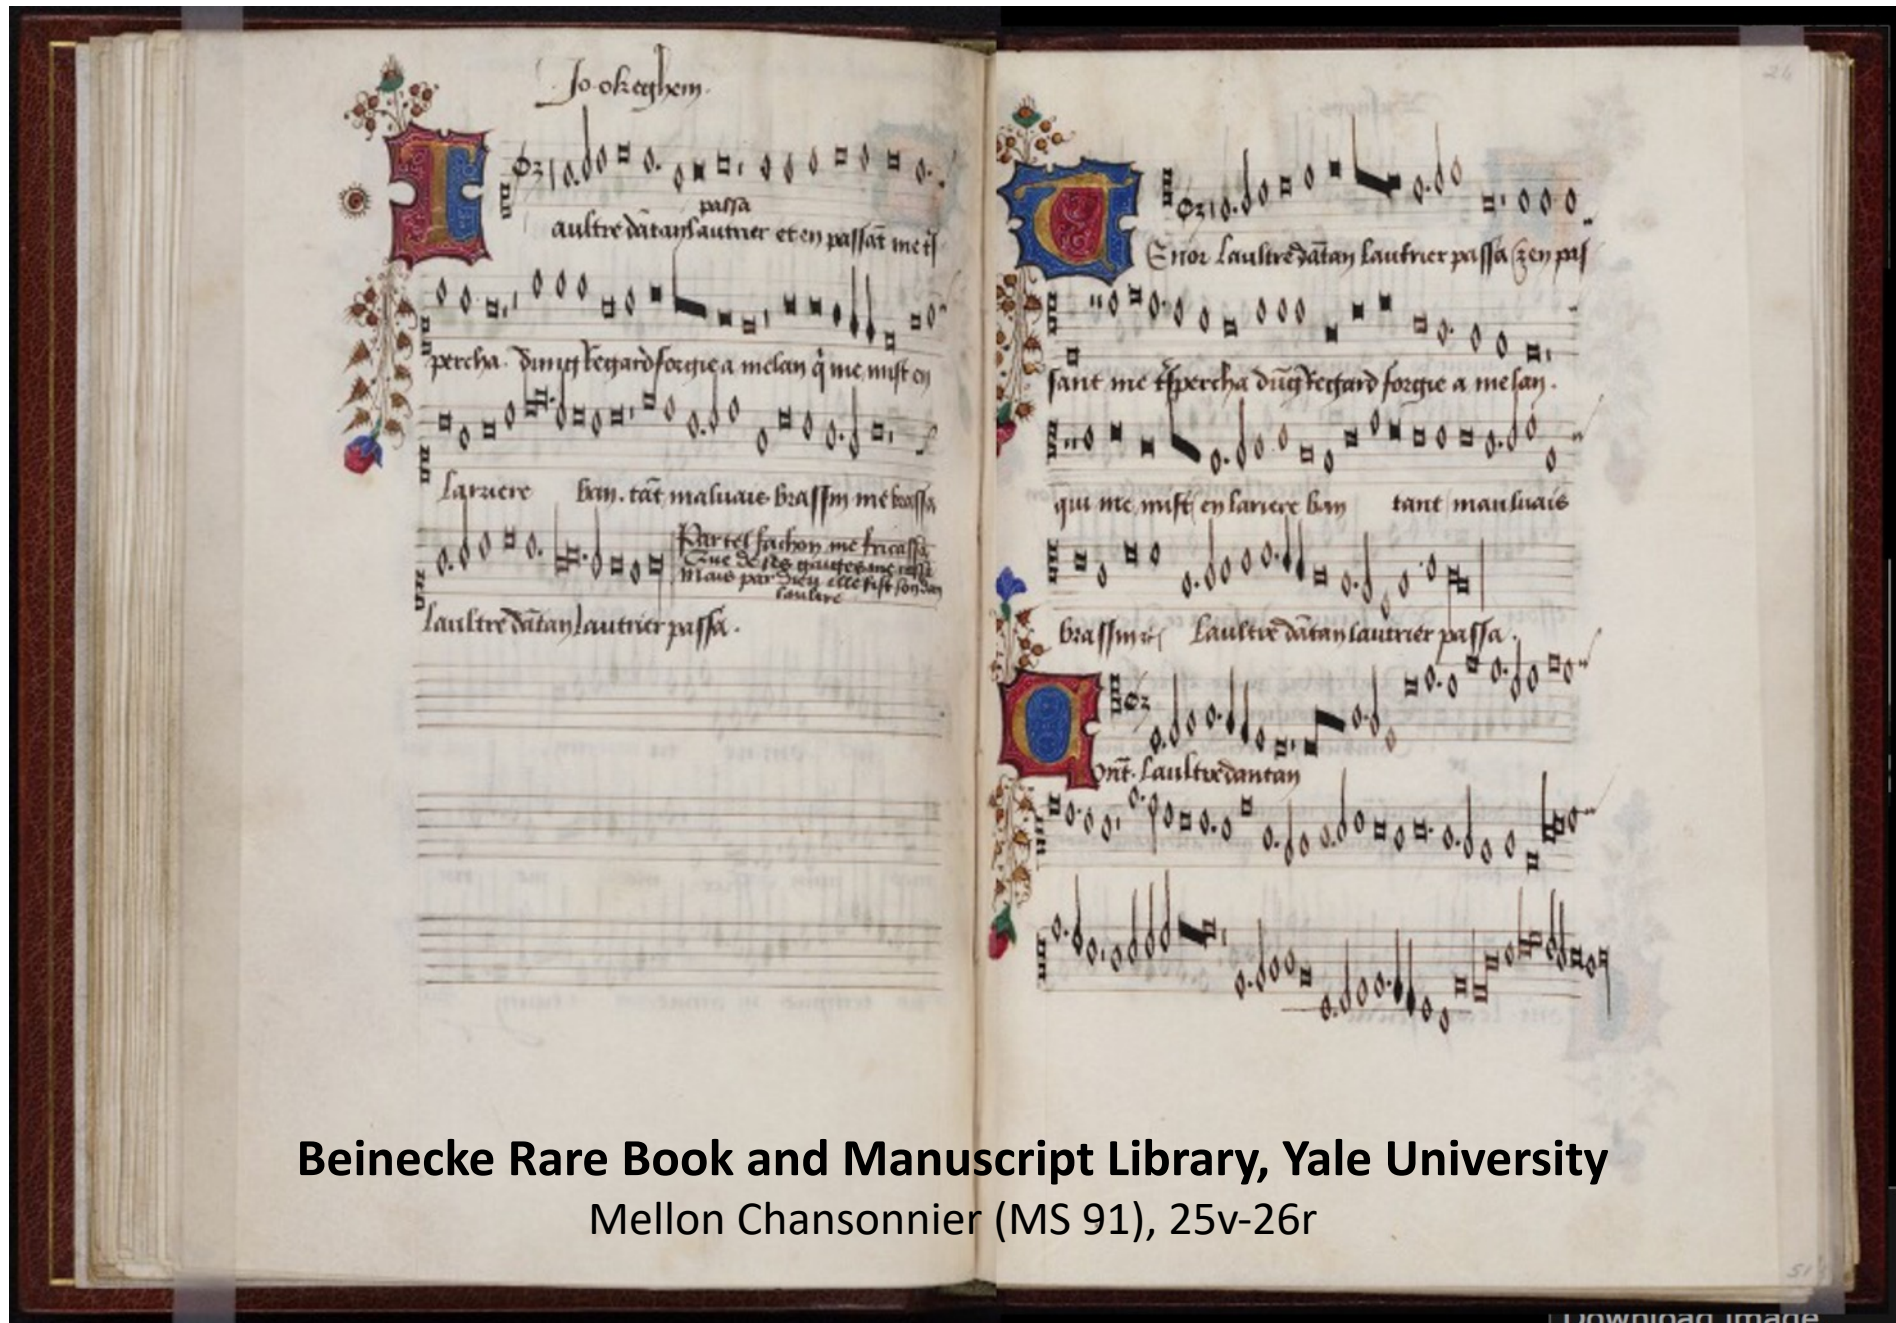 Jo okeghem.
L
passa
aultre dātan lautrier et en passāt me t͛s
percha. dung regard forgie a melan q̃ me mist en
larriere ban. tāt maluais brassin me brassa
Par tel fachon me fricassa
Que de ses gauges me cassa
Mais par dieu elle fist son dan
laultre
laultre dātan lautrier passa.
26
T
Enor laultre dātan lautrier passa
sant me t͛spercha dūg regard forgie a melan.
qui me mist en lariere ban tant mauluais
brassin Laultre dātan lautrier passa.
C
ont̃. laultre dantan
51
Beinecke Rare Book and Manuscript Library, Yale University
Mellon Chansonnier (MS 91), 25v-26r
Download image